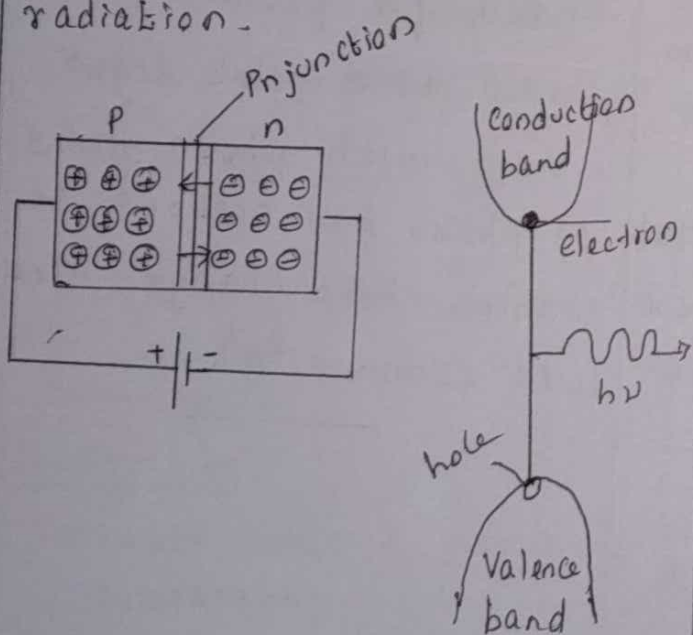 radiation.
Pnjunction
P
n
+ -
Conduction
band
electron
hν
hole
Valence
band